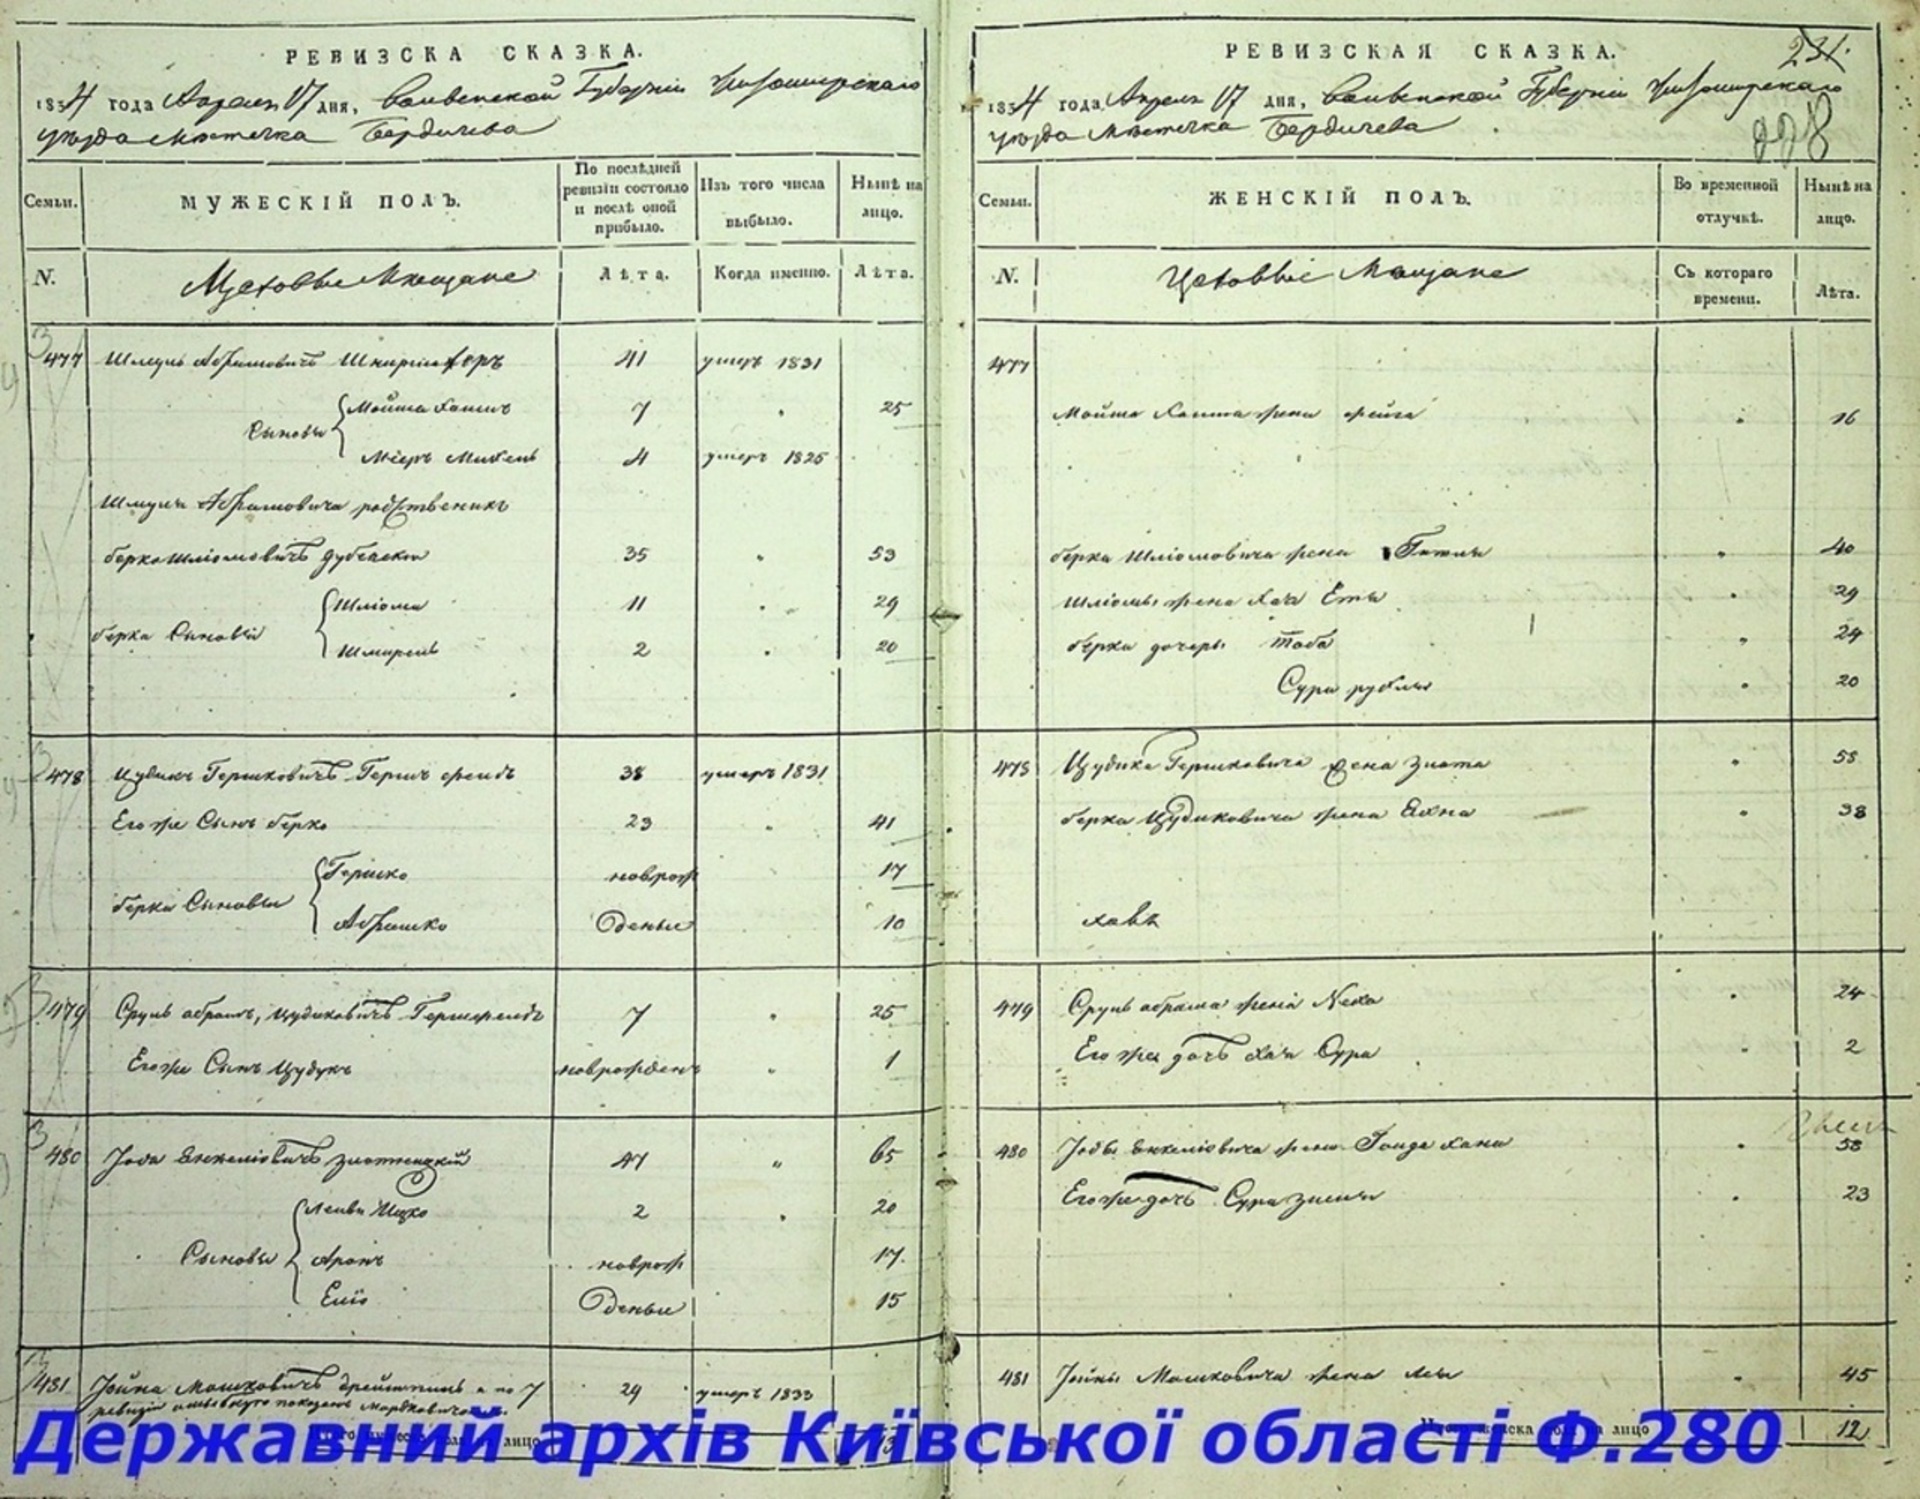 РЕВИЗСКА СКАЗКА.
1834 года Апреля 17 дня, Волынской Губернии Житомирского
уезда местечка Бердичева
Семьи.
МУЖЕСКІЙ ПОЛЪ.
По послѣдней ревизіи состояло и послѣ оной прибыло.
Изъ того числа выбыло.
Нынѣ на лицо.
N.
Цеховые Мещане
Лѣта.
Когда именно.
Лѣта.
477 Шмуль Абрамовичъ 41 умеръ 1831
Сыновья Мойша Хаимъ 7 25
Мееръ Михель 4 умеръ 1825
Шмуля Абрамовича родственикъ
Берко Шліомовичъ Дубенскій 35 53
Берка Сыновья Шліома 11 29
Шмарель 2 20
478 Цудикъ Гершковичъ Гершфельдъ 38 умеръ 1831
Его же Сынъ Берко 23 41
Берка Сыновья Гершко новрож 17
Абрашко Деные 10
479 Сруль Абрамъ, Цудиковичъ Гершфельдъ 7 25
Его же Сынъ Цудикъ новрожденъ 1
480 Злотницкій 47 65
Сыновья Лейви Ицко 2 20
Аронъ новрож 17
Еліо Деные 15
481 Іойна Мошковичъ а по 7 29 умеръ 1833
ревизіи показанъ Мордковичомъ
РЕВИЗСКАЯ СКАЗКА.
231.
1834 года Апреля 17 дня, Волынской Губерніи Житомирскаго
228
уезда местечка Бердичева
Семьи.
ЖЕНСКІЙ ПОЛЪ.
Во временной отлучкѣ.
Нынѣ на лицо.
N.
Цеховые Мещане
Съ котораго времени.
Лѣта.
477
Мойша Хаима жена Фейга 16
Берка Шліомовича жена Гитля 40
Шліомы жена Хая Етя 29
Берка дочерь Тоба 24
Сура Рухля 20
478 Цудика Гершковича жена Злота 58
Берка Цудиковича жена Яхна 38
479 Сруль Абрама жена Неха 24
Его же дочь Хая Сура 2
480 жена Хана 58
Его же дочь Сура 23
481 Іойны Мошковича жена Лея 45
женска пола на лицо 12
Державний архів Київської області Ф.280